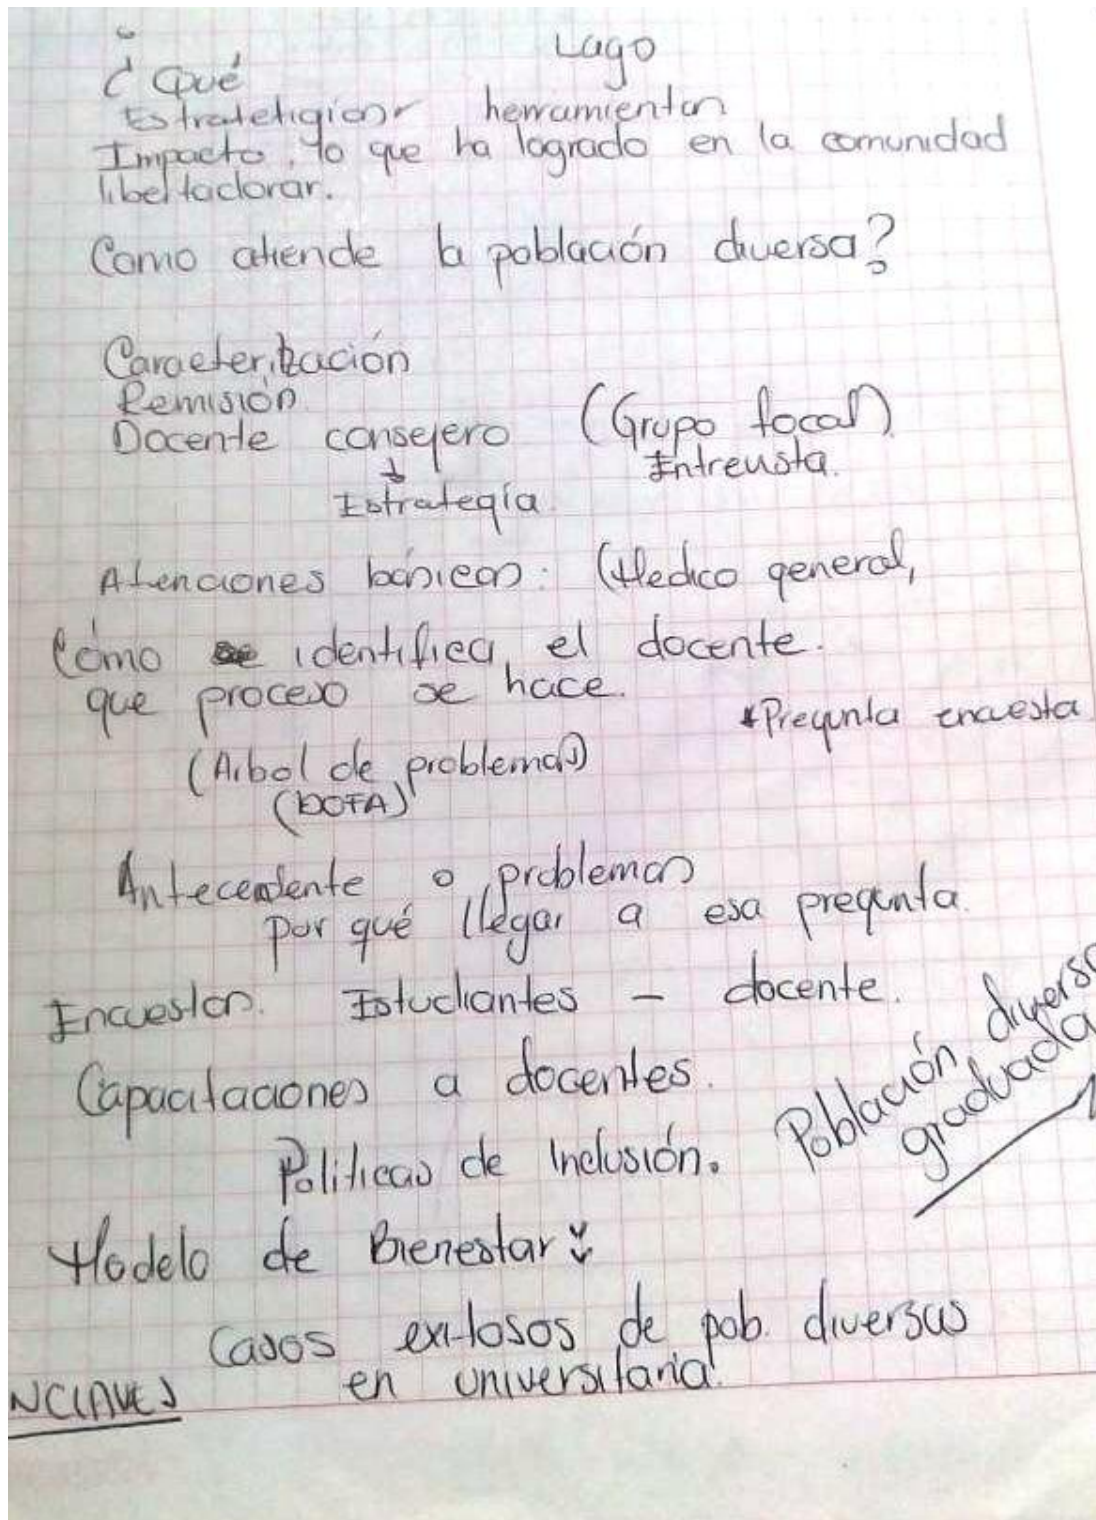 ¿ Qué Lago
Estratetigias herramientas
Impacto, lo que ha logrado en la comunidad
libertadorar.
Como atiende la población diversa?
Caracterización
Remisión
Docente consejero (Grupo focal)
Entrevista.
Estrategía
Atenciones básicas: (Medico general,
Cómo se identifica, el docente.
que proceso se hace.
*Pregunta encuesta
(Arbol de problemas)
(DOFA)
Antecedente o problemas
por qué llegar a esa pregunta.
Encuestas. Estudiantes - docente.
Capacitaciones a docentes.
Población diversa
graduada
Politicas de Inclusión.
Modelo de Bienestar
Casos exitosos de pob. diversas
en universitaria.
NCIAVES